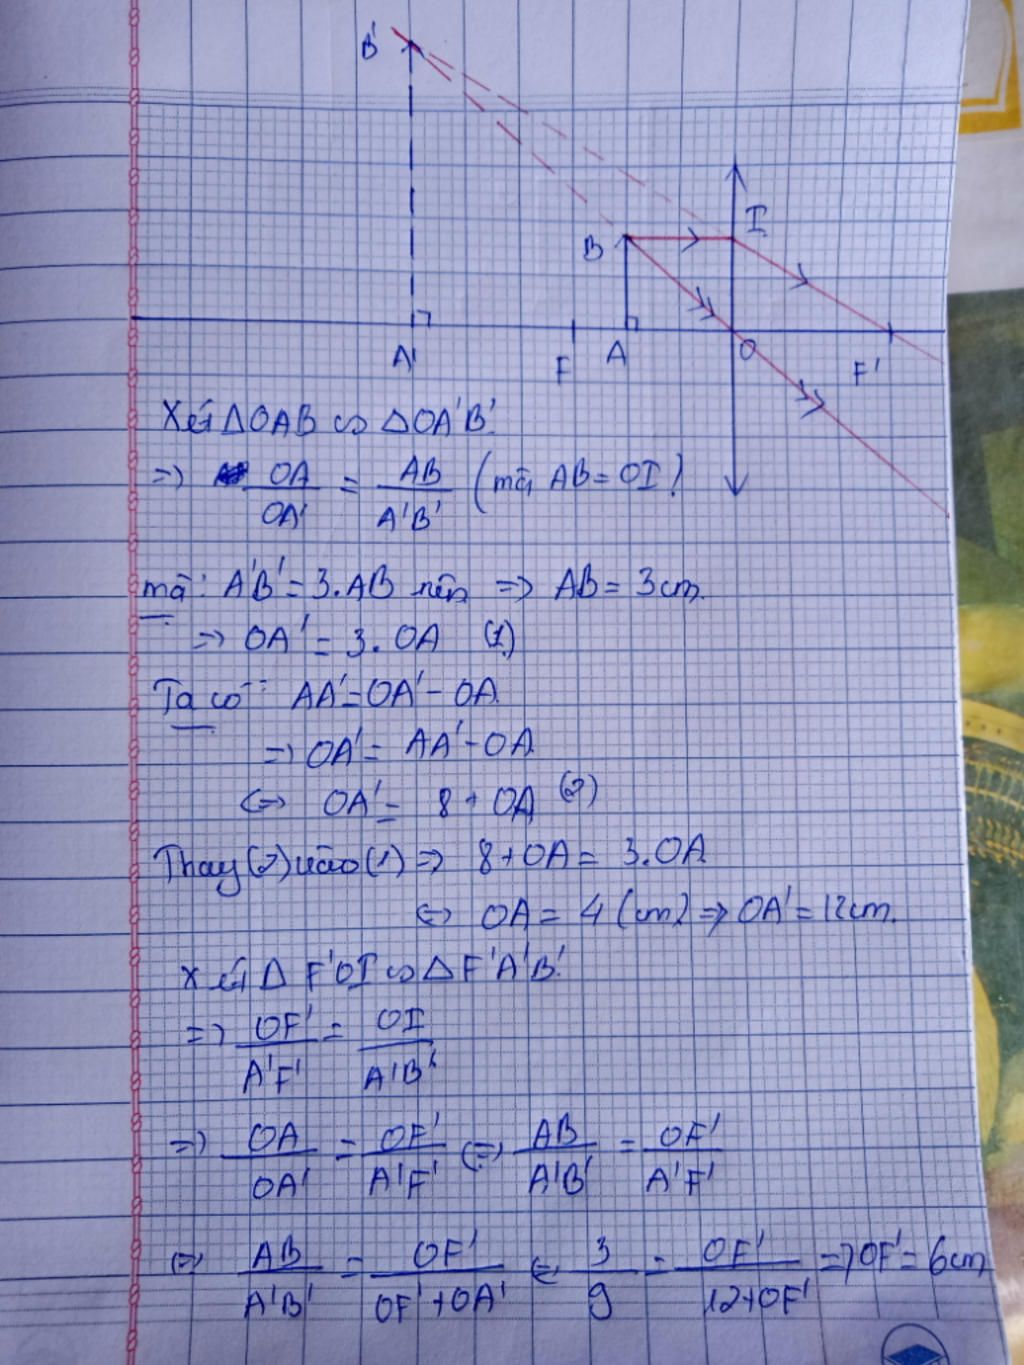 B'
I
B
A'
F
A
O
F'
Xét ΔOAB ∽ ΔOA'B'
=> OA/OA' = AB/A'B' (mà AB = OI)
mà: A'B' = 3.AB nên => AB = 3cm.
=> OA' = 3.OA (1)
Ta có: AA' = OA' - OA
=> OA' = AA' - OA
<=> OA' = 8 + OA (2)
Thay (2) vào (1) => 8 + OA = 3.OA
<=> OA = 4 (cm) => OA' = 12cm.
Xét Δ F'OI ∽ Δ F'A'B'
=> OF'/A'F' = OI/A'B'
=> OA/OA' = OF'/A'F' <=> AB/A'B' = OF'/A'F'
<=> AB/A'B' = OF'/OF'+OA' <= 3/9 = OF'/12+OF' => OF' = 6cm